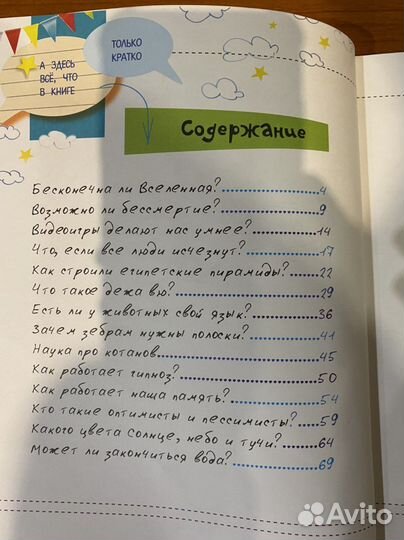 А ЗДЕСЬ
ВСЁ, ЧТО
В КНИГЕ
ТОЛЬКО
КРАТКО
Содержание
Бесконечна ли Вселенная?..................4
Возможно ли бессмертие?..................9
Видеоигры делают нас умнее?..................14
Что, если все люди исчезнут?..................17
Как строили египетские пирамиды?..................22
Что такое дежа вю?..................29
Есть ли у животных свой язык?..................36
Зачем зебрам нужны полоски?..................41
Наука про котанов..................45
Как работает гипноз?..................50
Как работает наша память?..................54
Кто такие оптимисты и пессимисты?..................59
Какого цвета Солнце, небо и тучи?..................64
Может ли закончиться вода?..................69
Avito